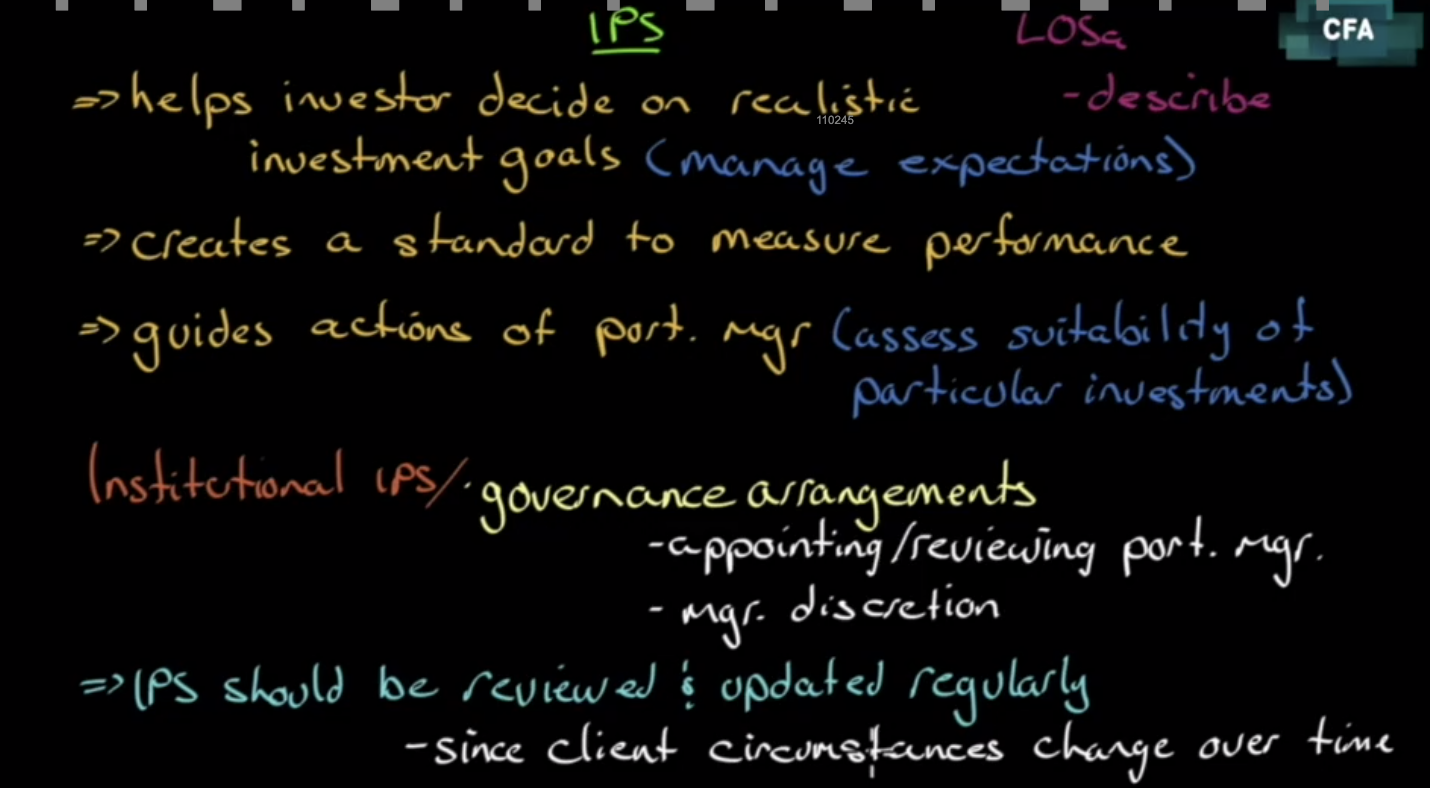 IPS
LOSa
CFA
=> helps investor decide on realistic
- describe
110245
investment goals (manage expectations)
=> creates a standard to measure performance
=> guides actions of port. mgr (assess suitability of
particular investments)
Institutional IPS/. governance arrangements
- appointing/reviewing port. mgr.
- mgr. discretion
=> IPS should be reviewed & updated regularly
- since client circumstances change over time